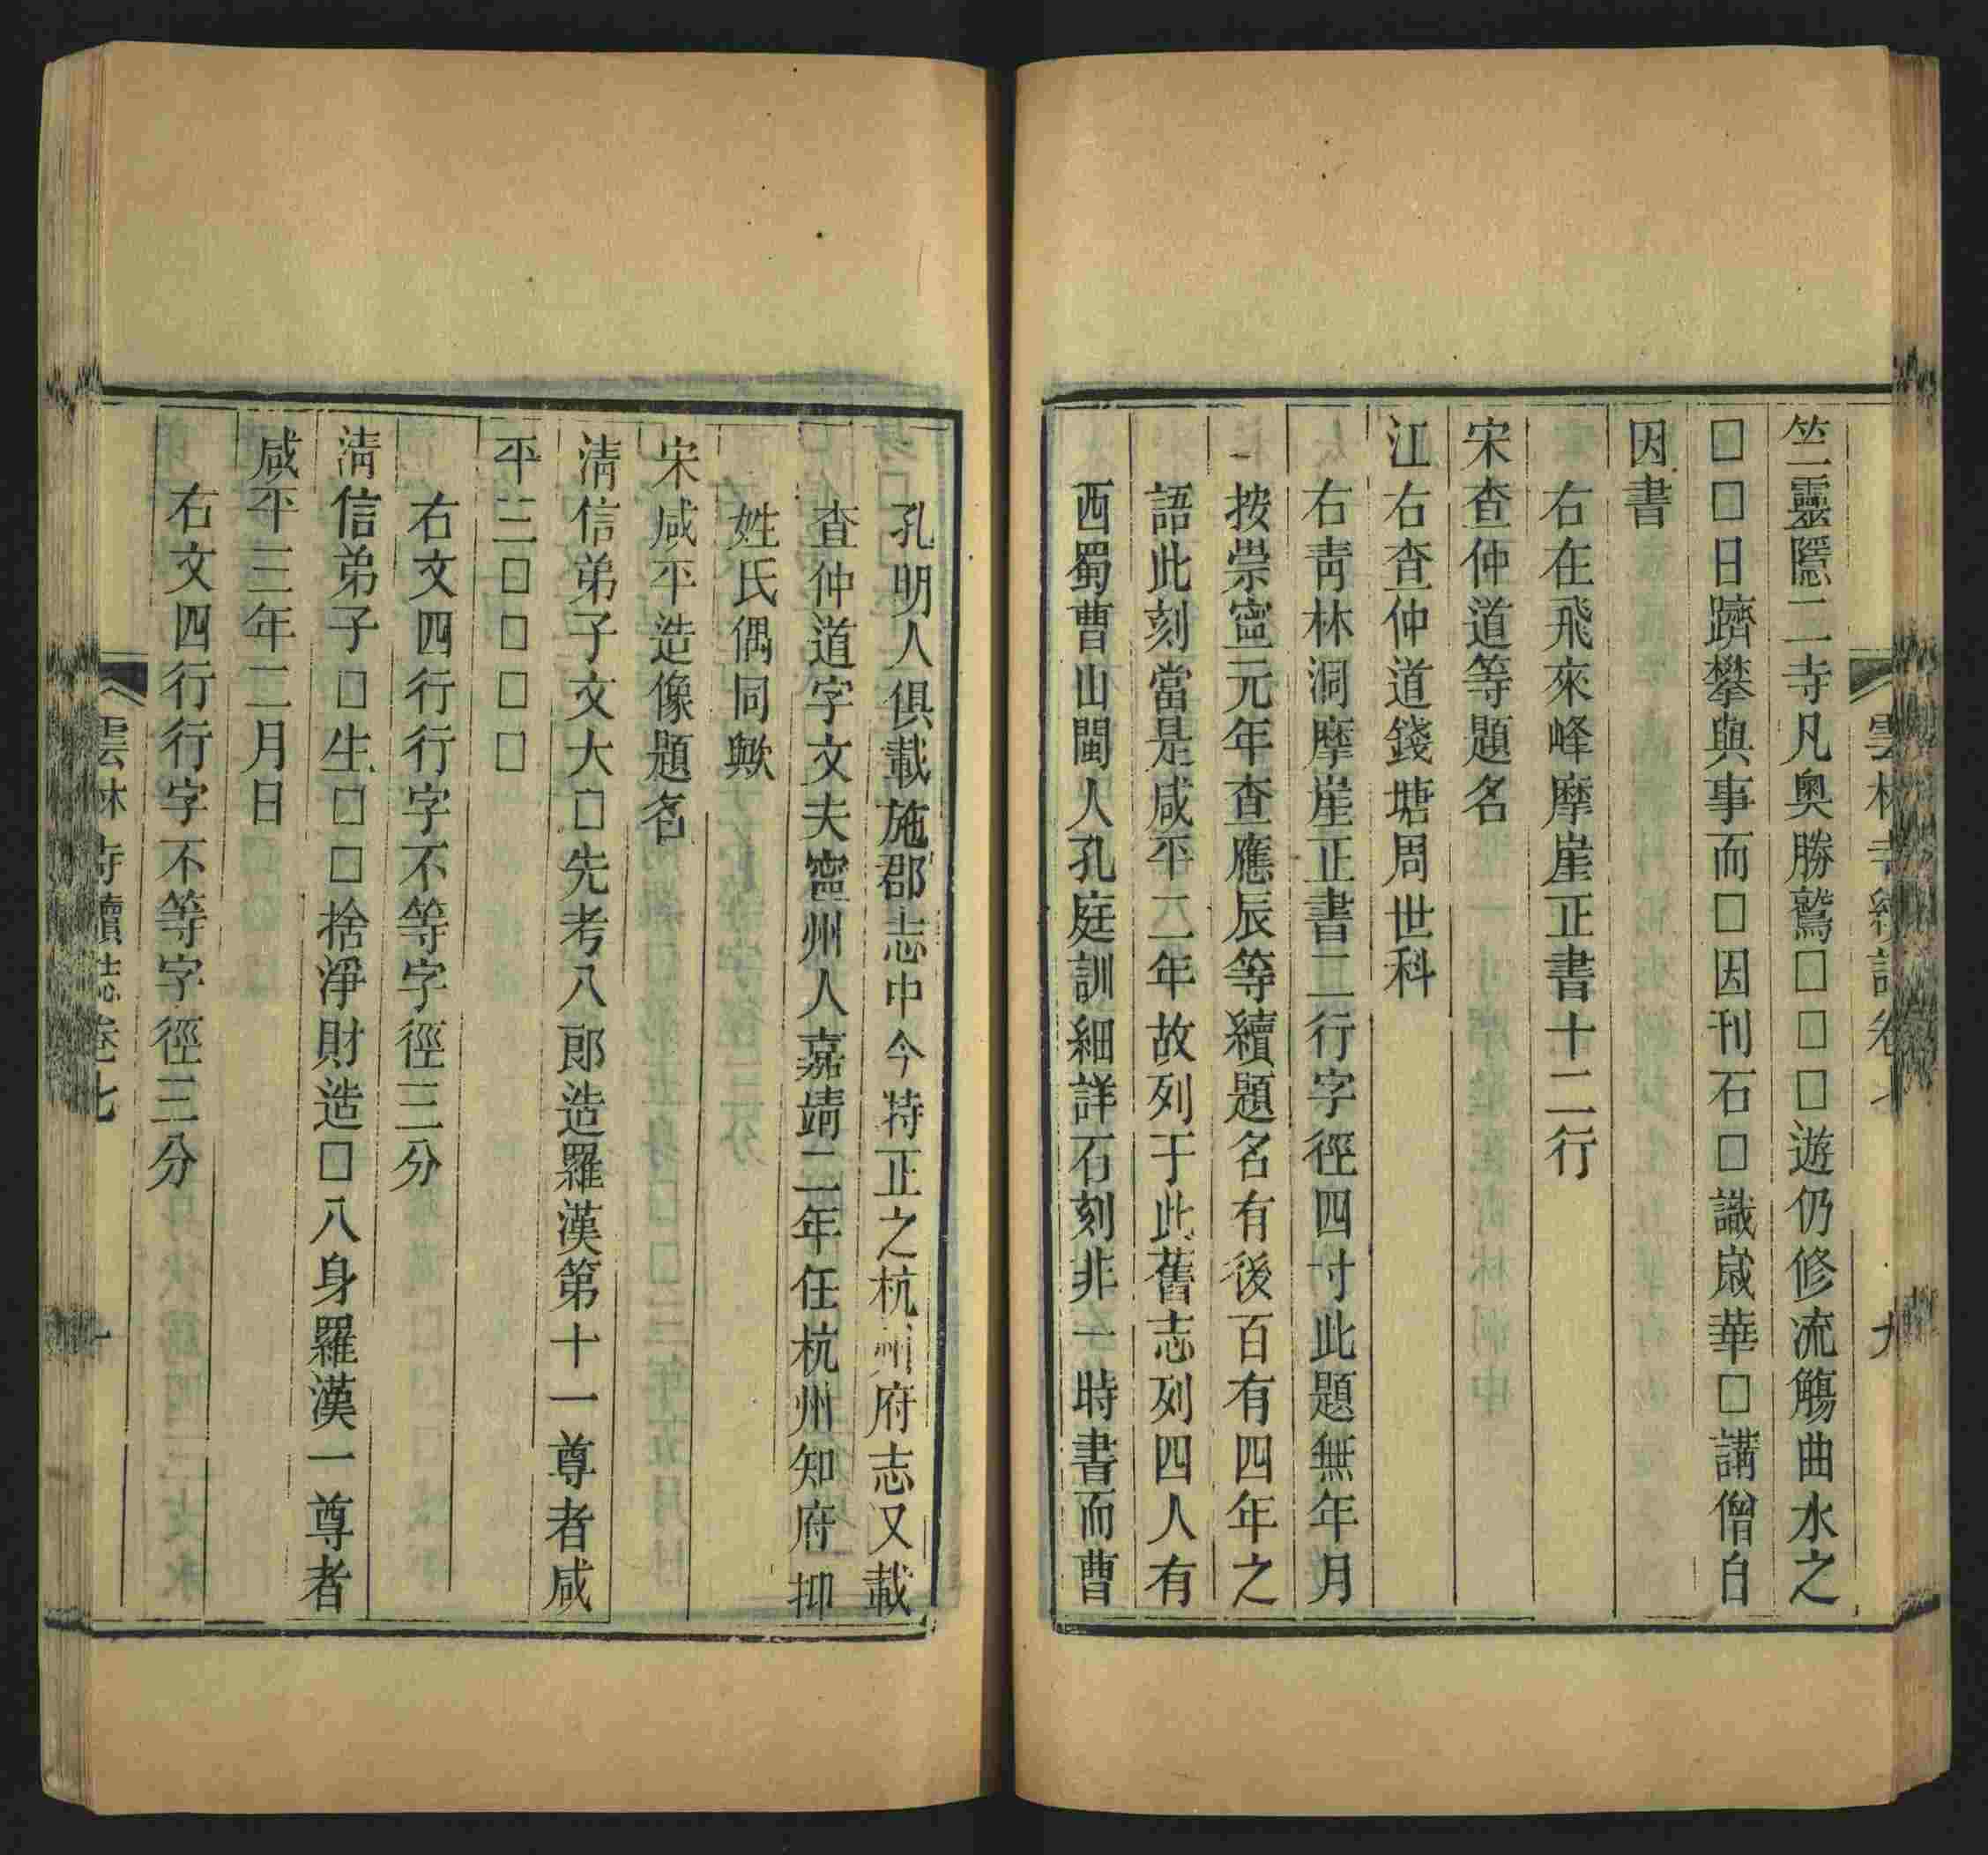 竺靈隱二寺凡奧勝鷲□□□遊仍修流觴曲水之
□□日躋攀與事而□因刊石□識歲華□講僧白
因書
右在飛來峰摩崖正書十二行
宋查仲道等題名
江右查仲道錢塘周世科
右靑林洞摩崖正書二行字徑四寸此題無年月
按崇寧元年查應辰等續題名有後百有四年之
語此刻當是咸平二年故列于此舊志列四人有
西蜀曹山閩人孔庭訓細詳石刻非一時書而曹
孔明人俱載施郡志中今特正之杭州府志又載
查仲道字文夫寧州人嘉靖二年任杭州知府抑
姓氏偶同歟
宋咸平造像題名
淸信弟子文大□先考八郞造羅漢第十一尊者咸
平三□□□□
右文四行行字不等字徑三分
淸信弟子□生□□捨淨財造□八身羅漢一尊者
咸平三年二月日
右文四行行字不等字徑三分
雲林寺續誌卷七